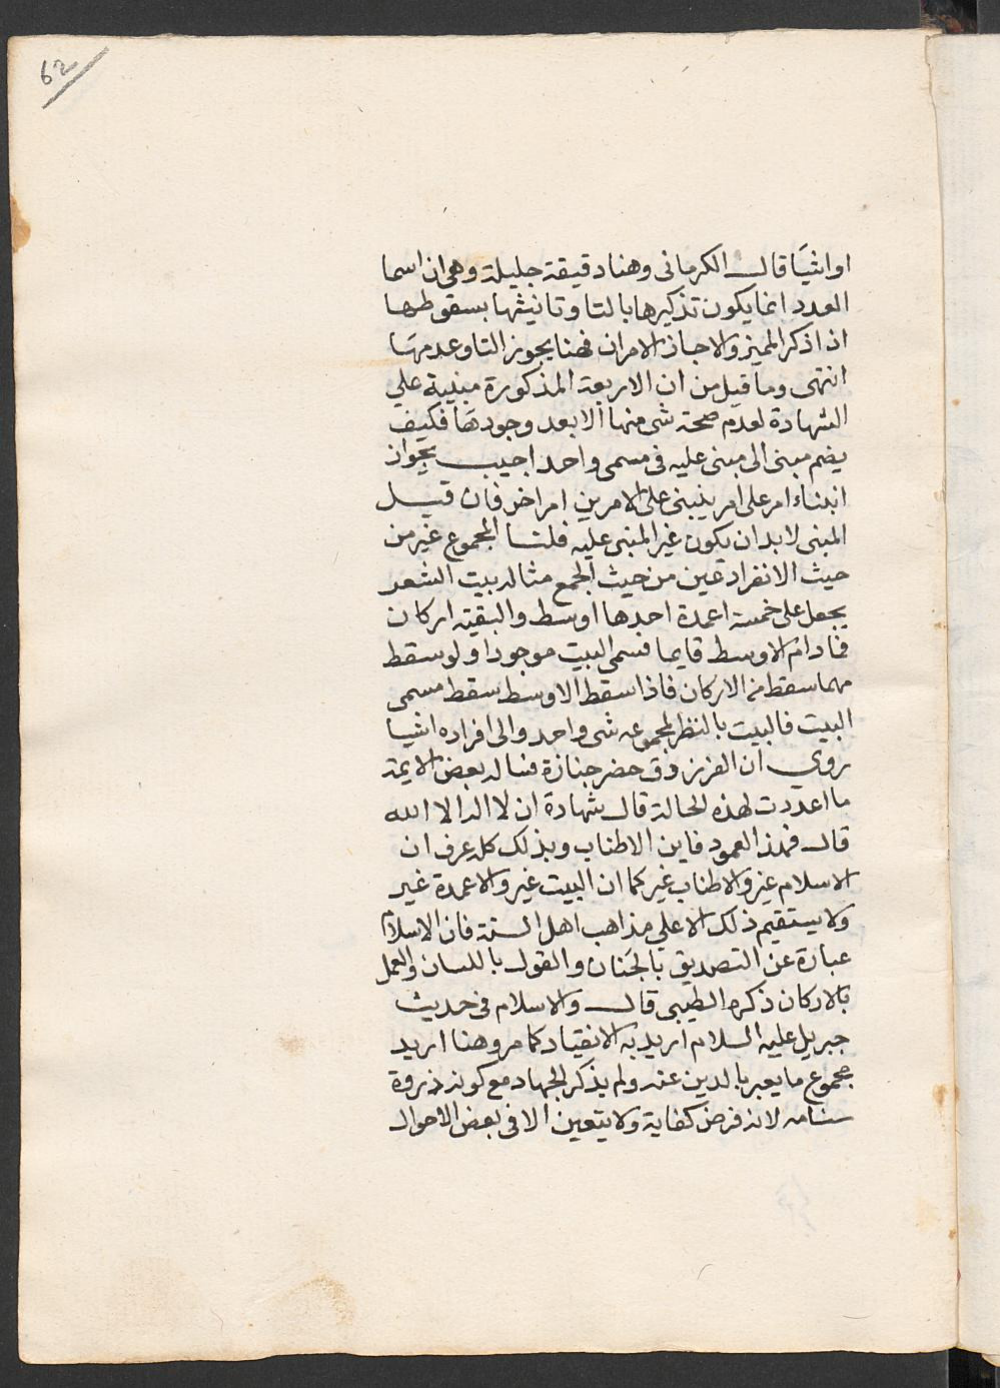 62
او اشيآ قال الكرماني وهنا دقيقة جليلة وهي ان اسما
العدد انما يكون تذكيرها بالتا وتانيثها بسقوطها
اذا ذكر المميز والا جاز الامران فهنا يجوز التا وعدمها
انتهى وما قيل من ان الاربعة المذكورة مبنية علي
الشهادة لعدم صحة شي منها الا بعد وجودها فكيف
يضم مبنى الى مبنى عليه في مسمى واحد اجيب بجواز
ابتناء امر على امر ينبنى على الامرين امر اخر فان قيل
المبنى لا بد ان يكون غير المبنى عليه قلنا المجموع غير من
حيث الانفراد عين من حيث الجمع مثاله بيت الشعر
يجعل على خمسة اعمدة احدها اوسط والبقية اركان
فمادام الاوسط قايما فسمى البيت موجودا ولو سقط
مهما سقط من الاركان فاذا سقط الاوسط سقط مسمى
البيت فالبيت بالنظر لمجموعه شي واحد والى افراده اشيا
روي ان الفرزدق حضر جنازة فساله بعض الايمة
ما اعددت لهذه الحالة قال شهادة ان لا اله الا الله
قال فهذا العمود فاين الاطناب وبذلك كله عرف ان
الاسلام غير والاطناب غير كما ان البيت غير والاعمدة غير
ولا يستقيم ذلك الا علي مذاهب اهل السنة فان الاسلام
عبارة عن التصديق بالجَنان والقول باللسان والعمل
بالاركان ذكره الطيبي قال والاسلام في حديث
جبريل عليه السلام اريد به الانقياد كما مر وهنا اريد
مجموع ما يعبر بالدين عنه ولم يذكر الجهاد مع كونه ذروة
سنامه لانه فرض كفاية ولا يتعين الا في بعض الاحوال